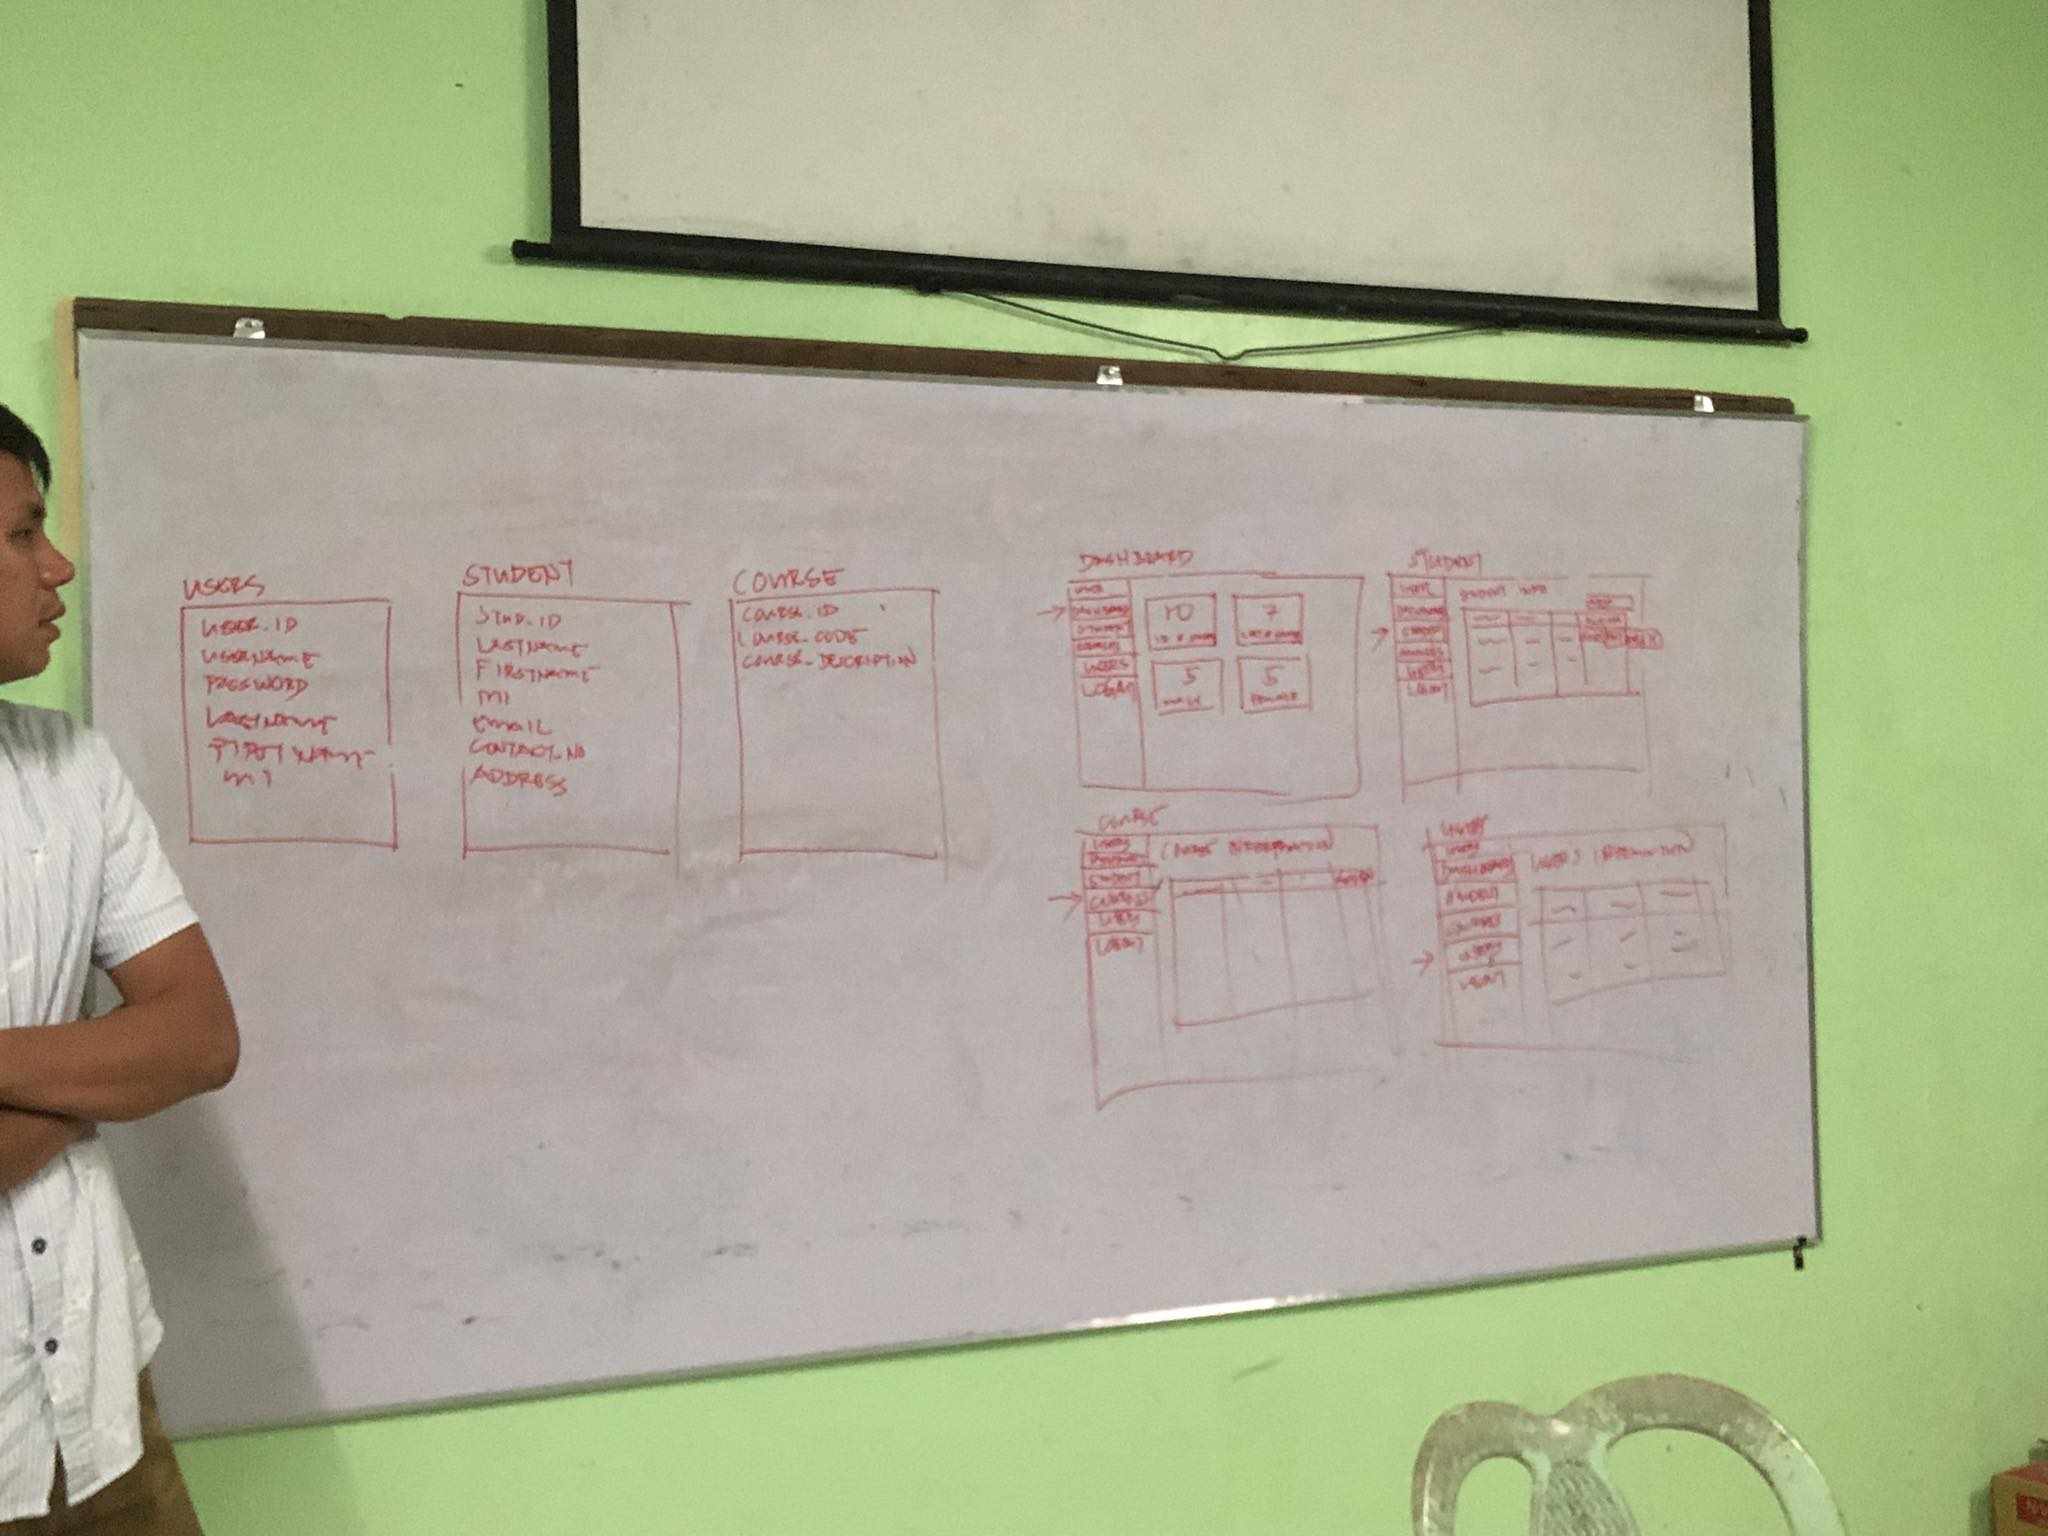 USERS
USER_ID
USERNAME
PASSWORD
LASTNAME
FIRSTNAME
MI
STUDENT
STUD_ID
LASTNAME
FIRSTNAME
MI
EMAIL
CONTACT_NO
ADDRESS
COURSE
COURSE_ID
COURSE_CODE
COURSE_DESCRIPTION
DASHBOARD
USER
DASHBOARD
STUDENT
COURSES
USERS
LOGOUT
10
7
5
MALE
5
FEMALE
STUDENT
USER
DASHBOARD
STUDENT
COURSES
USERS
LOGOUT
STUDENT INFO
COURSE
USERS
STUDENT
COURSES
USERS
LOGOUT
COURSE INFORMATION
USERS
USERS
DASHBOARD
STUDENT
COURSES
USERS
LOGOUT
USERS INFORMATION